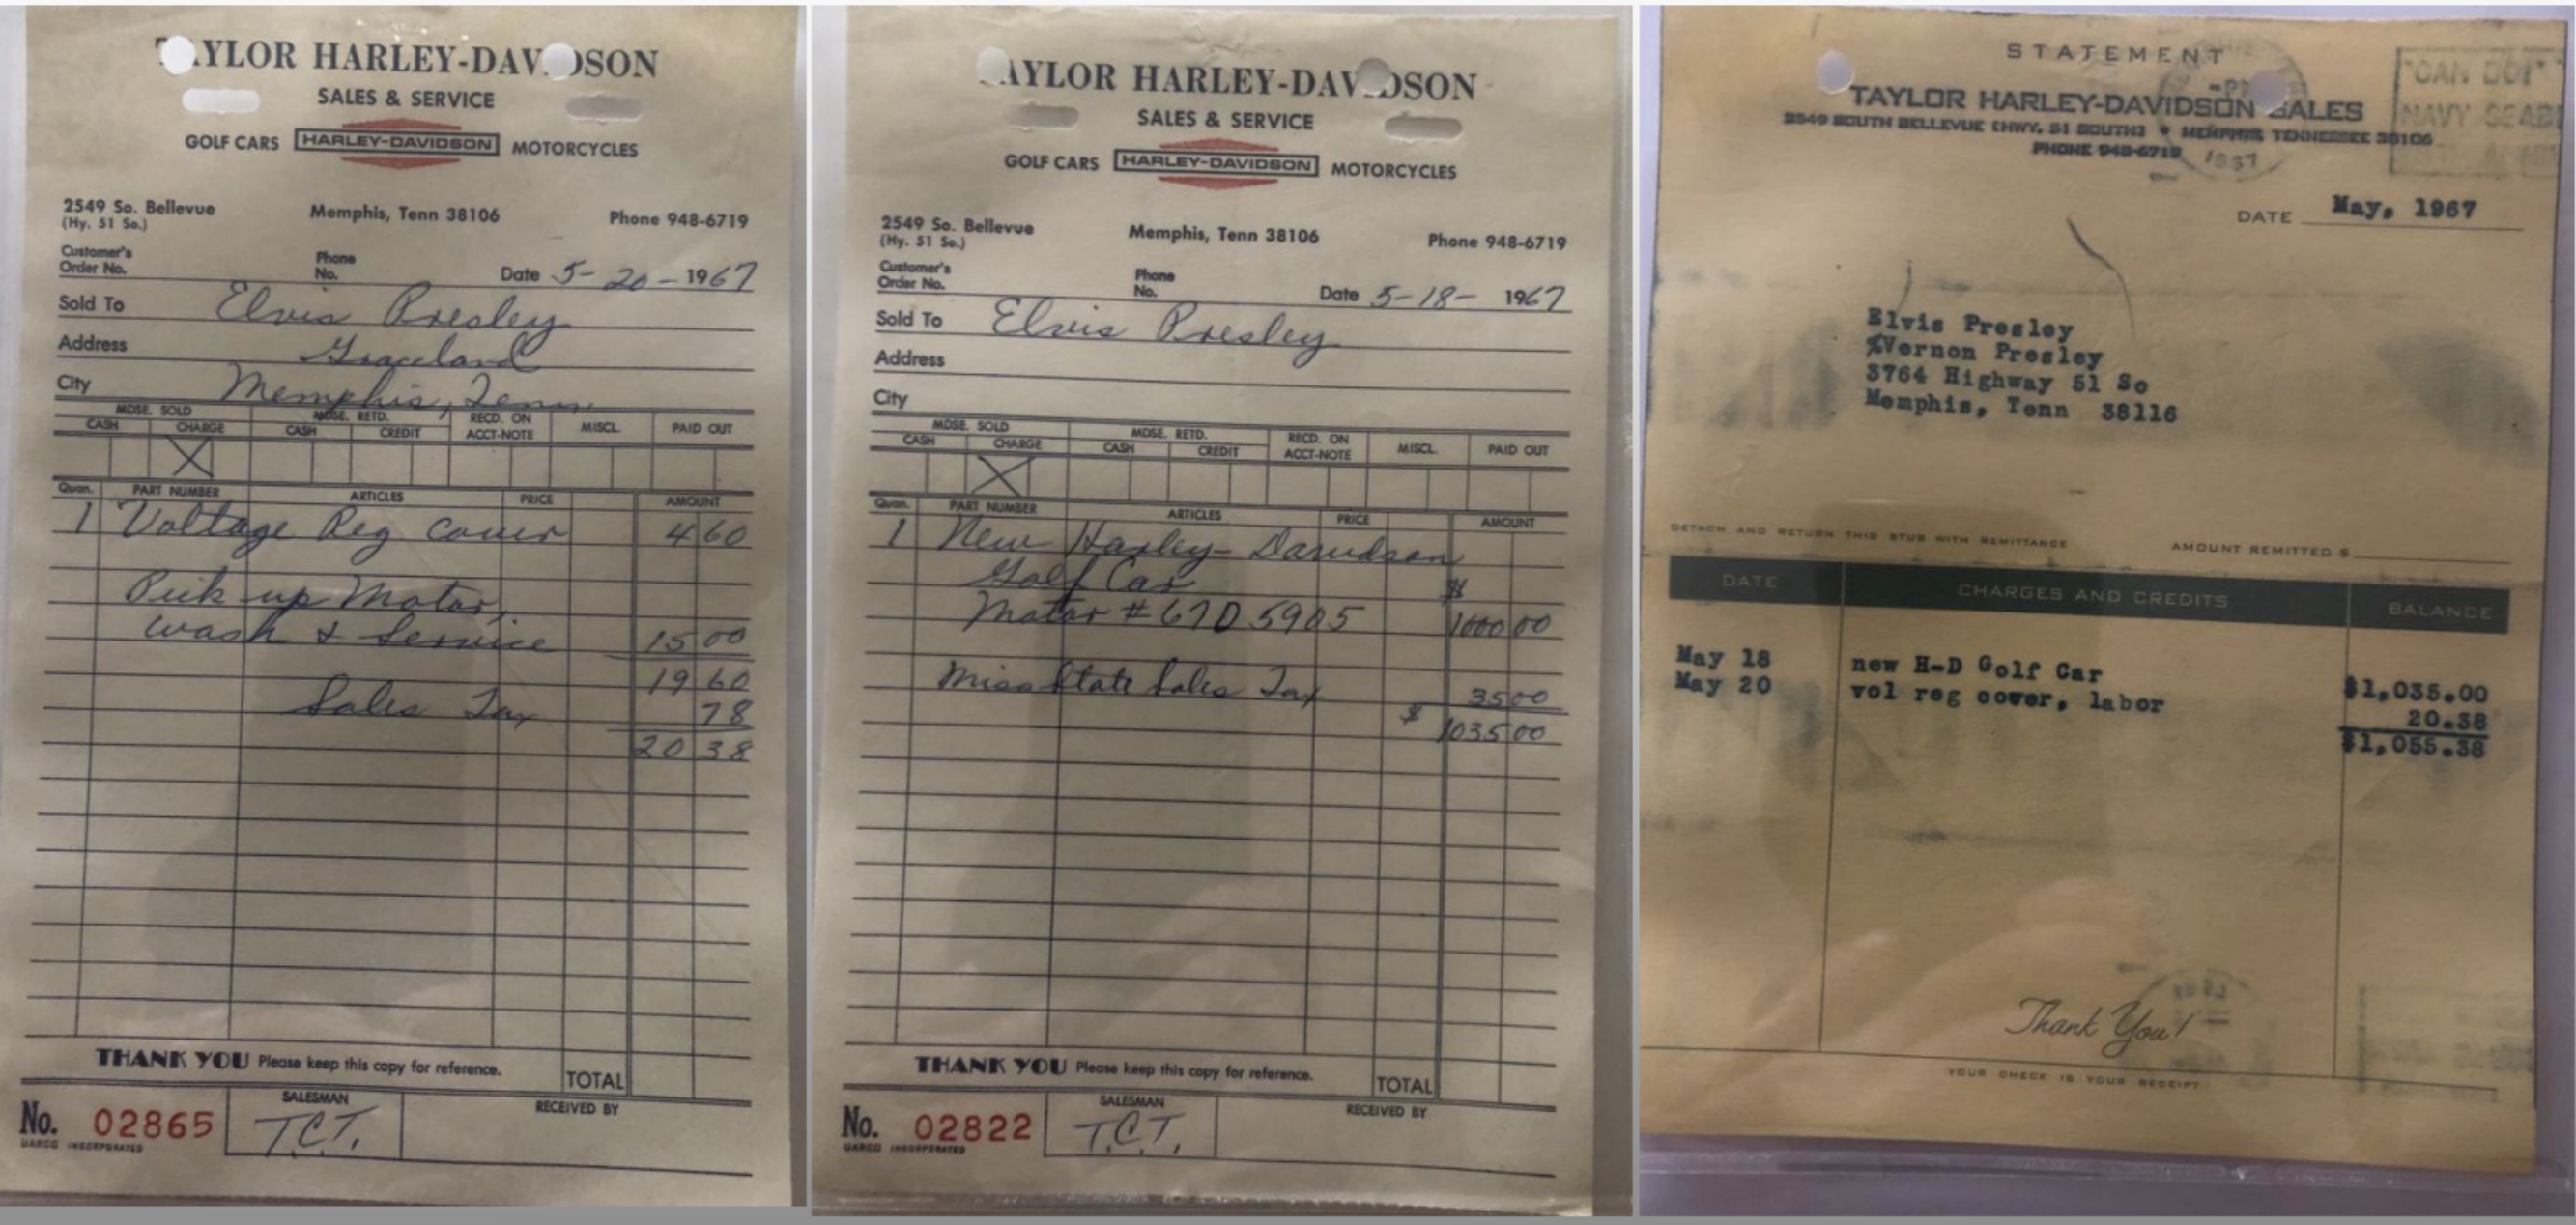 TAYLOR HARLEY-DAVIDSON
SALES & SERVICE
GOLF CARS HARLEY-DAVIDSON MOTORCYCLES
2549 So. Bellevue Memphis, Tenn 38106 Phone 948-6719
(Hy. 51 So.)
Customer's Order No. Phone No. Date 5-20-1967
Sold To Elvis Presley
Address Graceland
City Memphis, Tenn
MDSE. SOLD MDSE. RETD. RECD. ON ACCT-NOTE MISCL. PAID OUT
CASH CHARGE CASH CREDIT
X
Quan. PART NUMBER ARTICLES PRICE AMOUNT
1 Voltage Reg Cover 4 60
Pick up Motor,
wash & Service 15 00
19 60
Sales Tax 78
20 38
THANK YOU Please keep this copy for reference. TOTAL
No. 02865 SALESMAN T.C.T. RECEIVED BY
UARCO INCORPORATED
TAYLOR HARLEY-DAVIDSON
SALES & SERVICE
GOLF CARS HARLEY-DAVIDSON MOTORCYCLES
2549 So. Bellevue Memphis, Tenn 38106 Phone 948-6719
(Hy. 51 So.)
Customer's Order No. Phone No. Date 5-18-1967
Sold To Elvis Presley
Address
City
MDSE. SOLD MDSE. RETD. RECD. ON ACCT-NOTE MISCL. PAID OUT
CASH CHARGE CASH CREDIT
X
Quan. PART NUMBER ARTICLES PRICE AMOUNT
1 New Harley-Davidson
Golf Car $
Motor # 67D5905 1000 00
Miss State Sales Tax 35 00
$ 1035 00
THANK YOU Please keep this copy for reference. TOTAL
No. 02822 SALESMAN T.C.T. RECEIVED BY
UARCO INCORPORATED
STATEMENT
TAYLOR HARLEY-DAVIDSON SALES
2549 SOUTH BELLEVUE (HWY. 51 SOUTH) • MEMPHIS, TENNESSEE 38106
PHONE 948-6719
"CAN DO!"
NAVY SEAB
1967
DATE May, 1967
Elvis Presley
%Vernon Presley
3764 Highway 51 So
Memphis, Tenn 38116
DETACH AND RETURN THIS STUB WITH REMITTANCE AMOUNT REMITTED $
DATE CHARGES AND CREDITS BALANCE
May 18 new H-D Golf Car $1,035.00
May 20 vol reg cover, labor 20.38
$1,055.38
Thank You!
YOUR CHECK IS YOUR RECEIPT